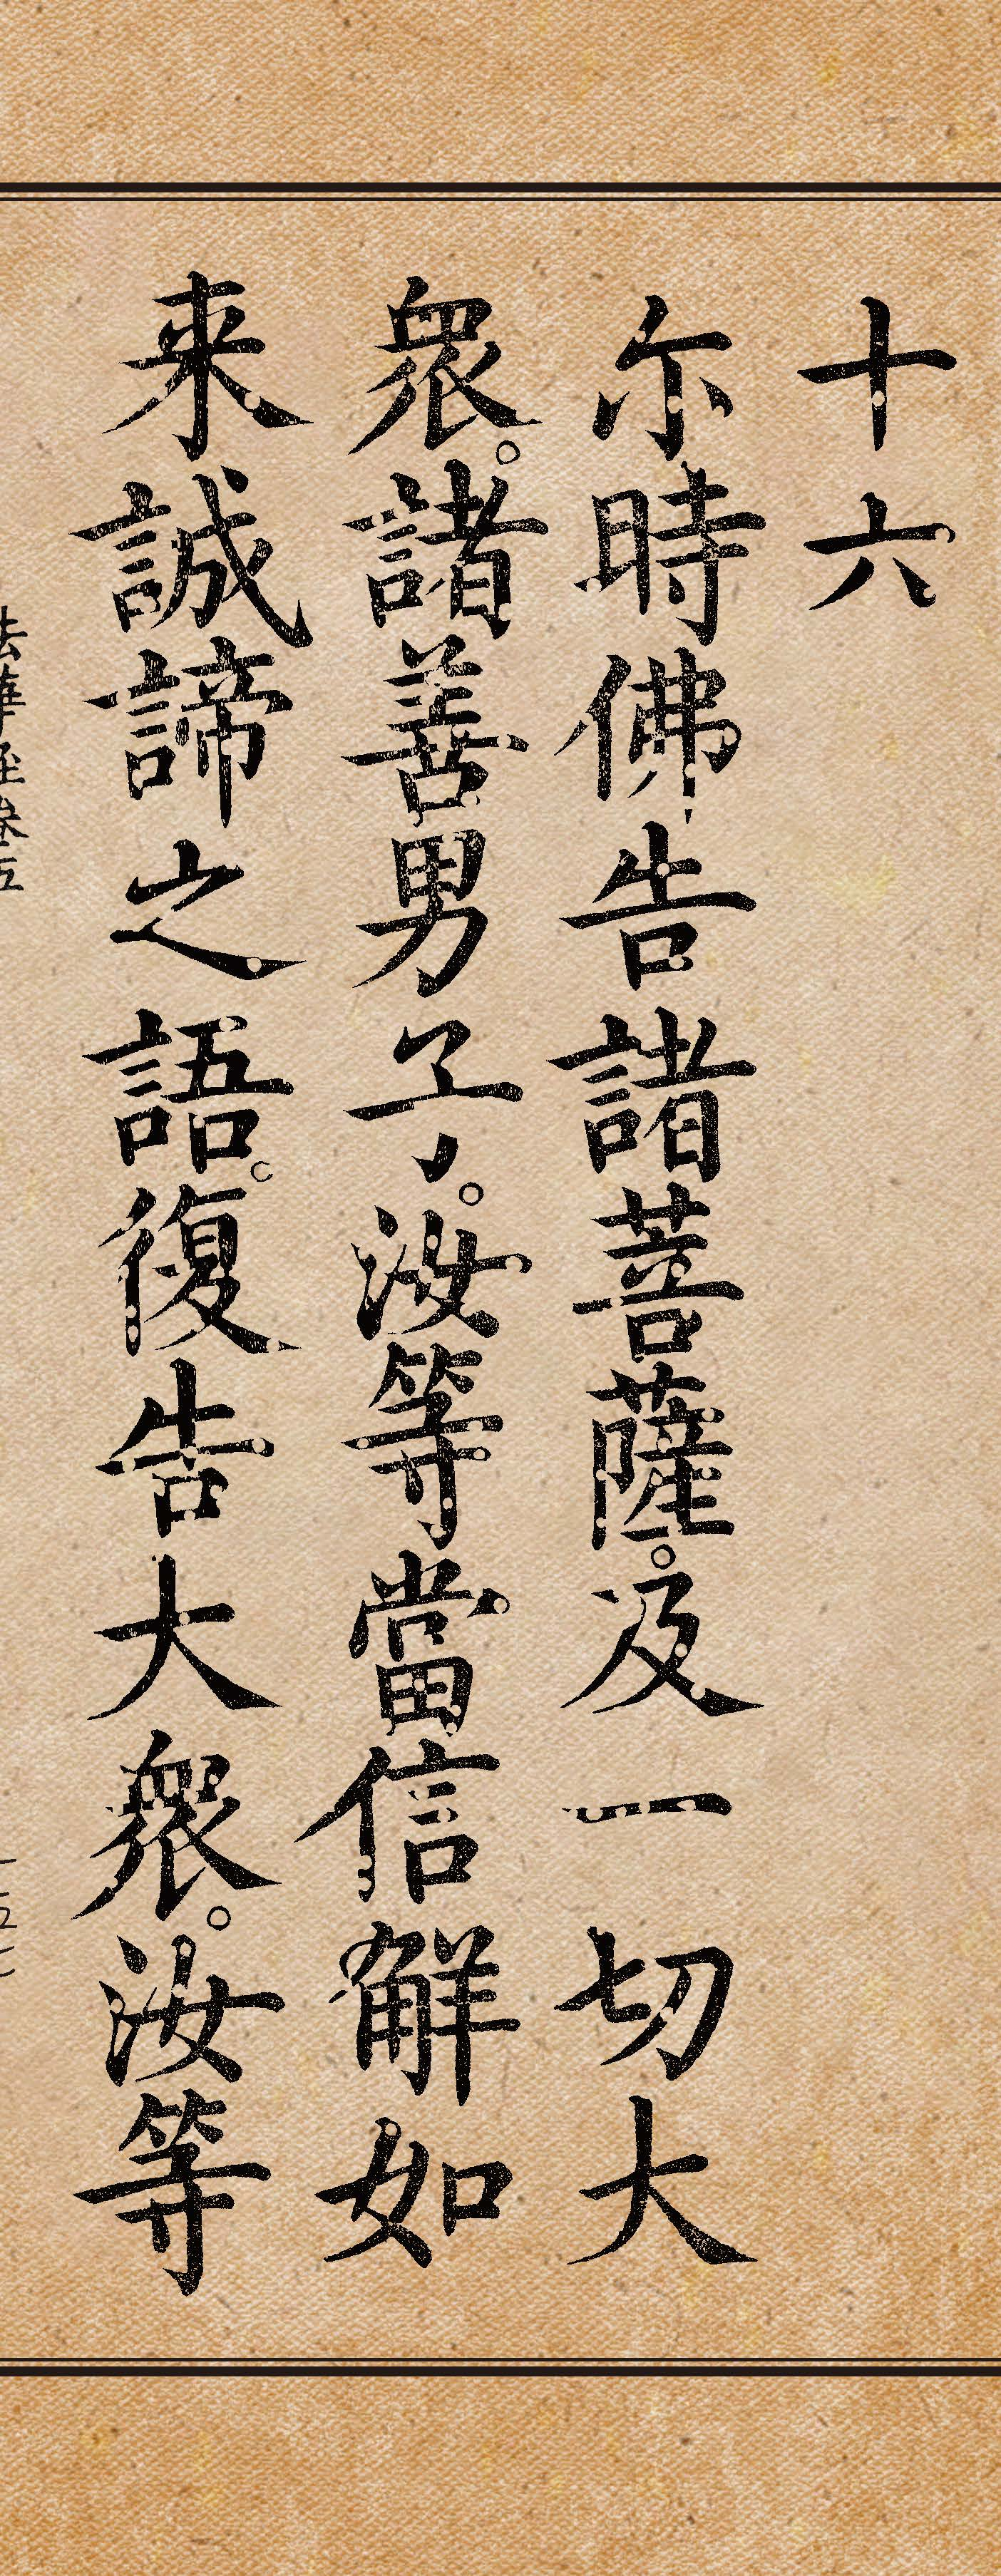 十六
尓時佛告諸菩薩。及一切大
衆。諸善男子。汝等當信解如
来誠諦之語。復告大衆。汝等
法華経巻五